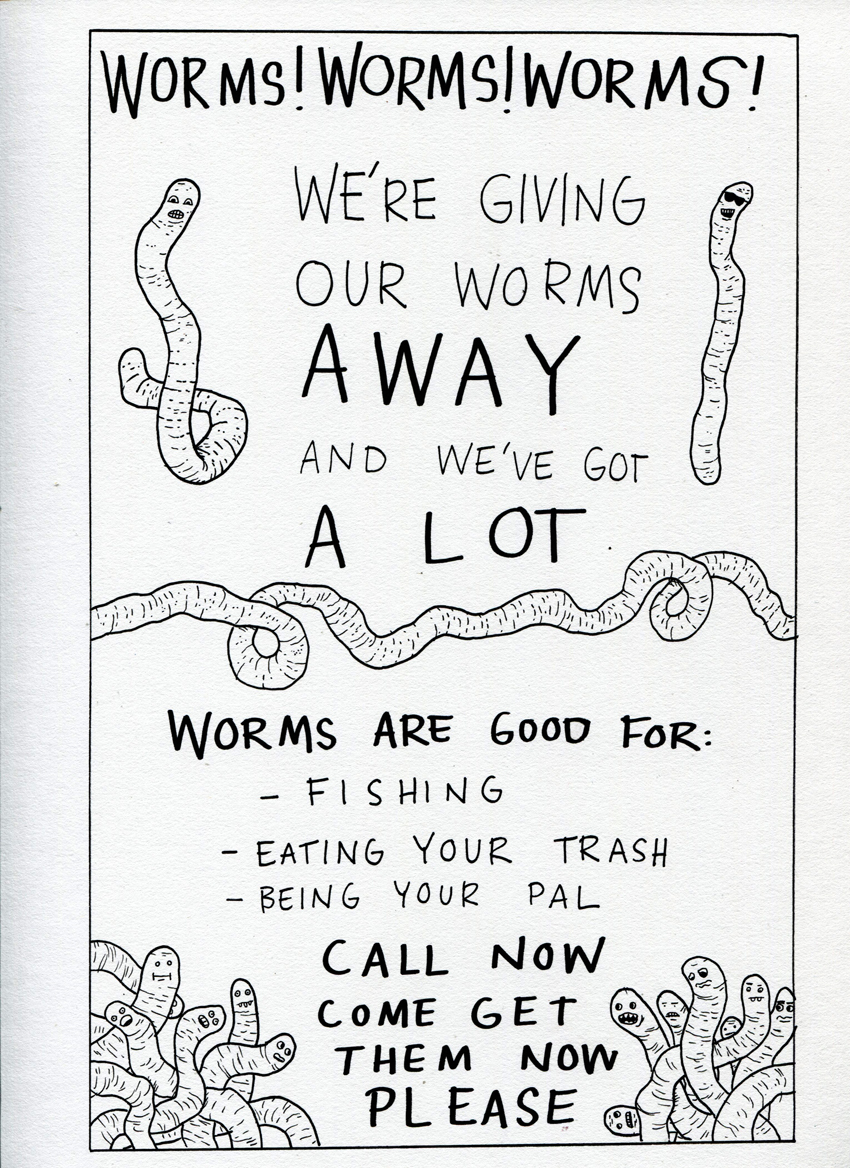 WORMS! WORMS! WORMS!
WE'RE GIVING
OUR WORMS
AWAY
AND WE'VE GOT
A LOT
WORMS ARE GOOD FOR:
- FISHING
- EATING YOUR TRASH
- BEING YOUR PAL
CALL NOW
COME GET
THEM NOW
PLEASE